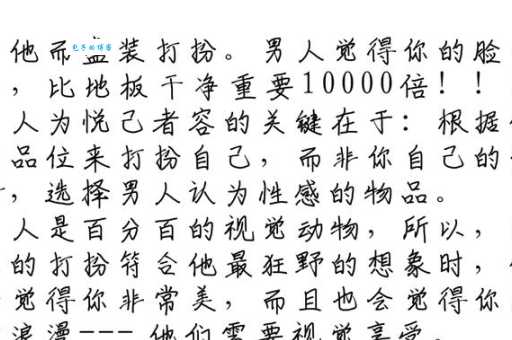 他而盛装打扮。男人觉得你的脸
包子的博客
，比地板干净重要10000倍！！
人为悦己者容的关键在于：根据
品位来打扮自己，而非你自己的
，选择男人认为性感的物品。
人是百分百的视觉动物，所以，
的打扮符合他最狂野的想象时，
觉得你非常美，而且也会觉得你
浪漫---他们需要视觉享受。